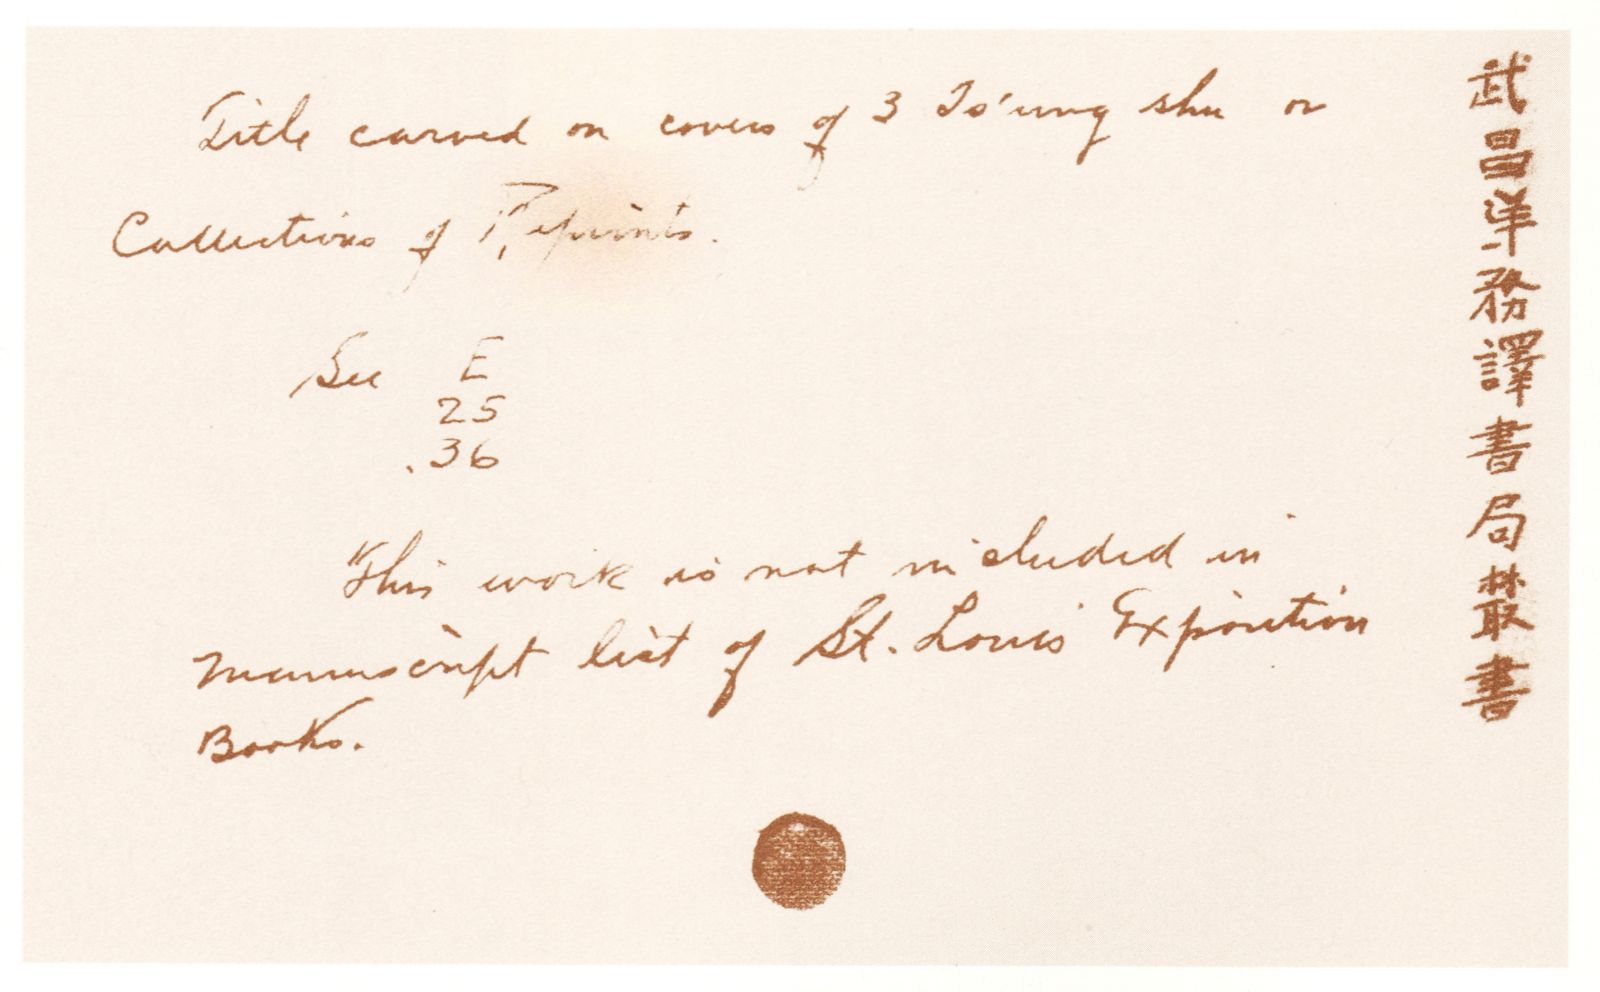 Title carved on covers of 3 Ts'ung shu or
Collections of Reprints.
See E
25
.36
This work is not included in
manuscript list of St. Louis Exposition
Books.
武昌洋務譯書局叢書